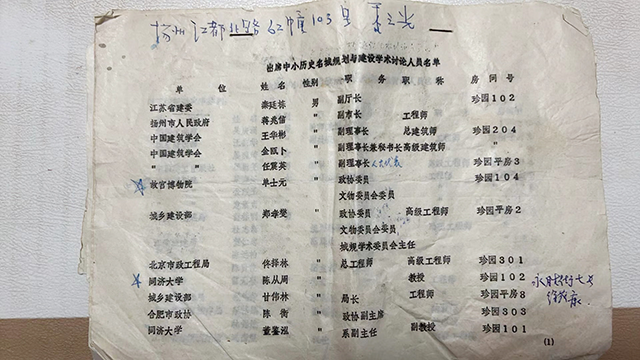 扬州 江都北路 62幢 103号
出席中小历史名城规划与建设学术讨论人员名单
单 位 姓 名 性别 职 务 职 称 房 间 号
江苏省建委 栾廷栋 男 副厅长 珍园102
扬州市人民政府 蒋兆苗 " 副市长 工程师
中国建筑学会 王华彬 " 副理事长 总建筑师 珍园204
中国建筑学会 金瓯卜 " 副理事长兼秘书长高级建筑师 "
" " 任震英 " 副理事长 人大代表 珍园平房3
故宫博物院 单士元 " 政协委员 珍园104
文物委员会委员
城乡建设部 郑孝燮 " 政协委员 高级工程师 珍园平房2
文物委员会委员
城规学术委员会主任
北京市政工程局 佟绎林 " 总工程师 高级工程师 珍园301
同济大学 陈从周 " 教授 珍园102
城乡建设部 甘伟林 " 局长 工程师 珍园平房8
合肥市政协 陈 衡 " 政协副主席 珍园303
同济大学 董鉴泓 " 系副主任 副教授 珍园101
(1)